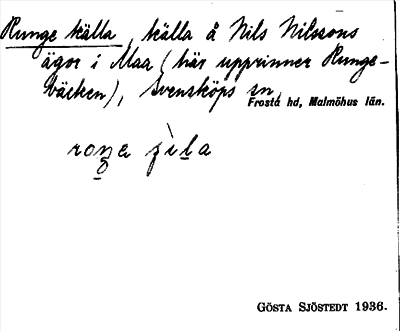 Runge källa, källa å Nils Nilssons
ägor i Maa (här upprinner Runge-
bäcken), Svensköps sn,
Frosta hd, Malmöhus län.
GÖSTA SJÖSTEDT 1936.